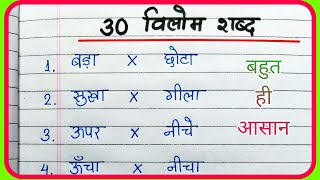 30 विलोम शब्द
1. बड़ा x छोटा
2. सुखा x गीला
3. ऊपर x नीचे
4. ऊँचा x नीचा
बहुत
ही
आसान